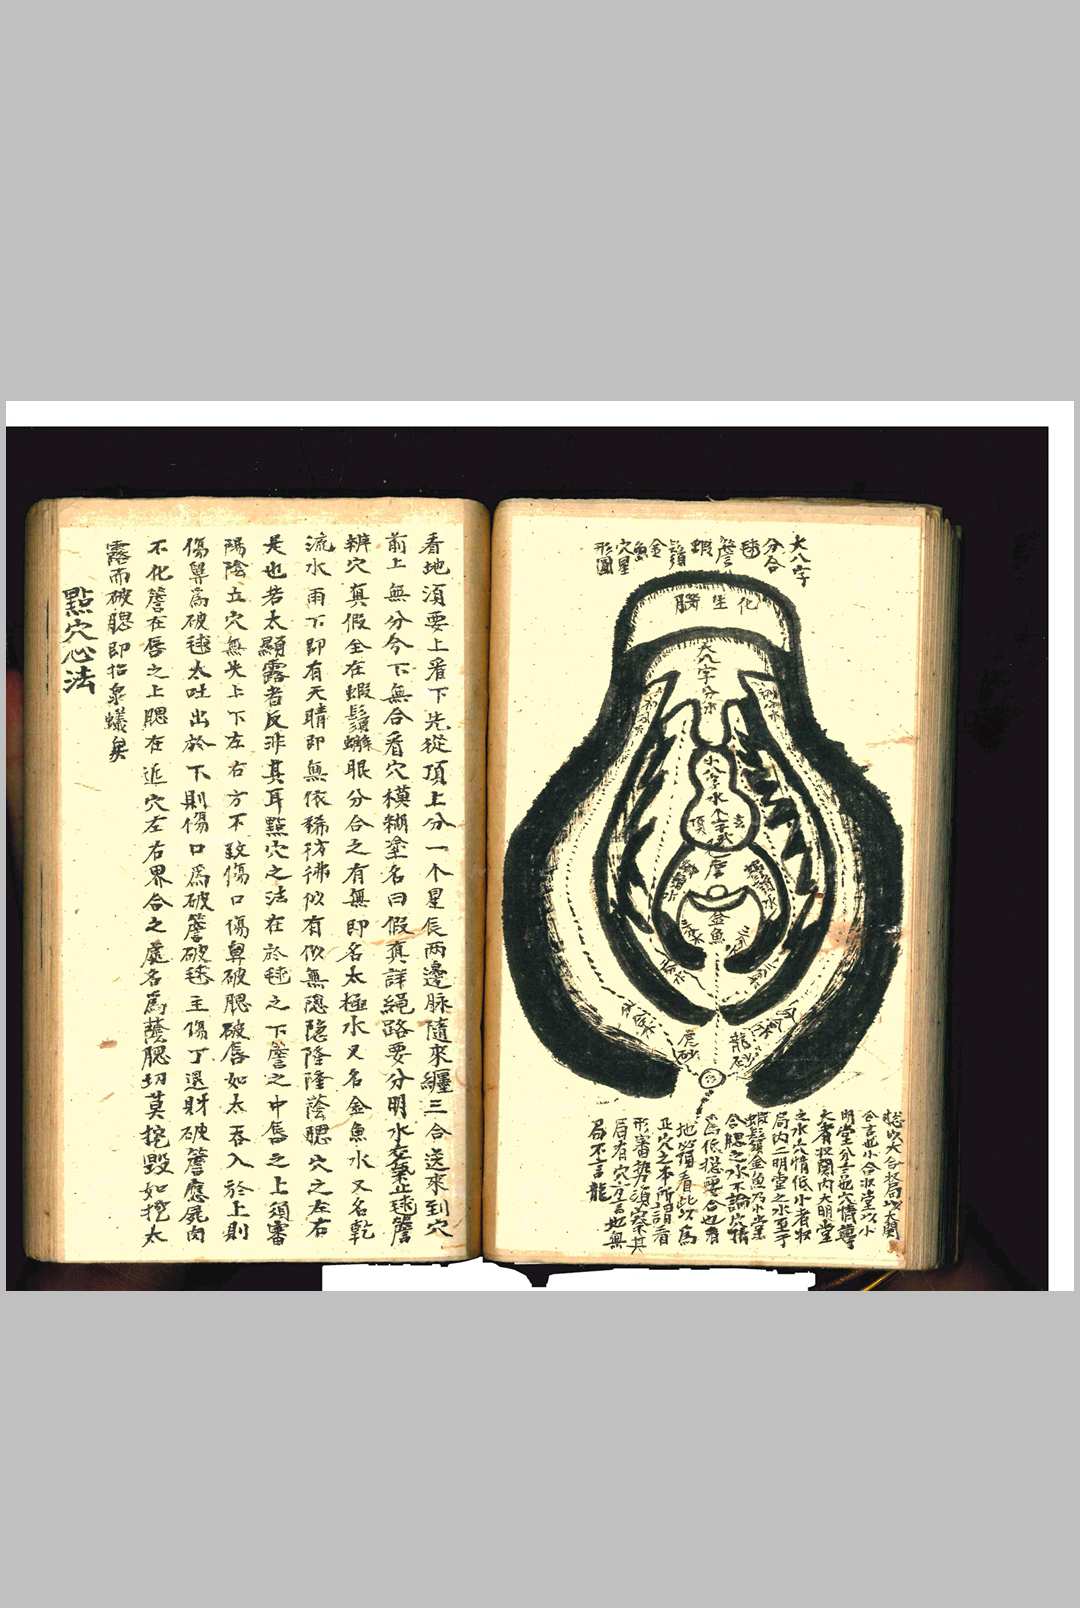 大八字
分合
毬
簷
蝦
鬚
金
魚
穴星
形圖
化生腦
大八字分水
小八字水
頂
唇
金魚
虎砂
龍砂
明堂分言也穴情薄
大者收関内大明堂
之水穴情低小者收
局内二明堂之水至于
蝦鬚金魚乃小業
合腮之水不論穴情
高低摠要合也看
地必須看此以為
正穴之本所謂看
形審勢須察其
局有穴方言地無
局不言龍
看地須要上看下先從頂上分一个星辰兩邊脉隨來纒三合送來到穴
前上無分今下無合看穴模糊塗名曰假真詳縄路要分明水交氣止毬簷
辨穴真假全在蝦鬚蠏眼分合之有無即名太極水又名金魚水又名乾
流水雨下即有天晴即無依稀彷彿似有似無隐隐隆隆蔭腮穴之左右
是也若太顯露者反非其耳點穴之法在於毬之下簷之中唇之上須審
陽陰立穴無失上下左右方不致傷口傷鼻破腮破唇如太吞入於上則
傷鼻為破毬太吐出於下則傷口為破簷破毬主傷丁還財破簷應屍肉
不化簷在唇之上腮在近穴左右界合之處名為蔭腮切莫挖毀如挖太
露而破腮即招泉蟻矣
點穴心法